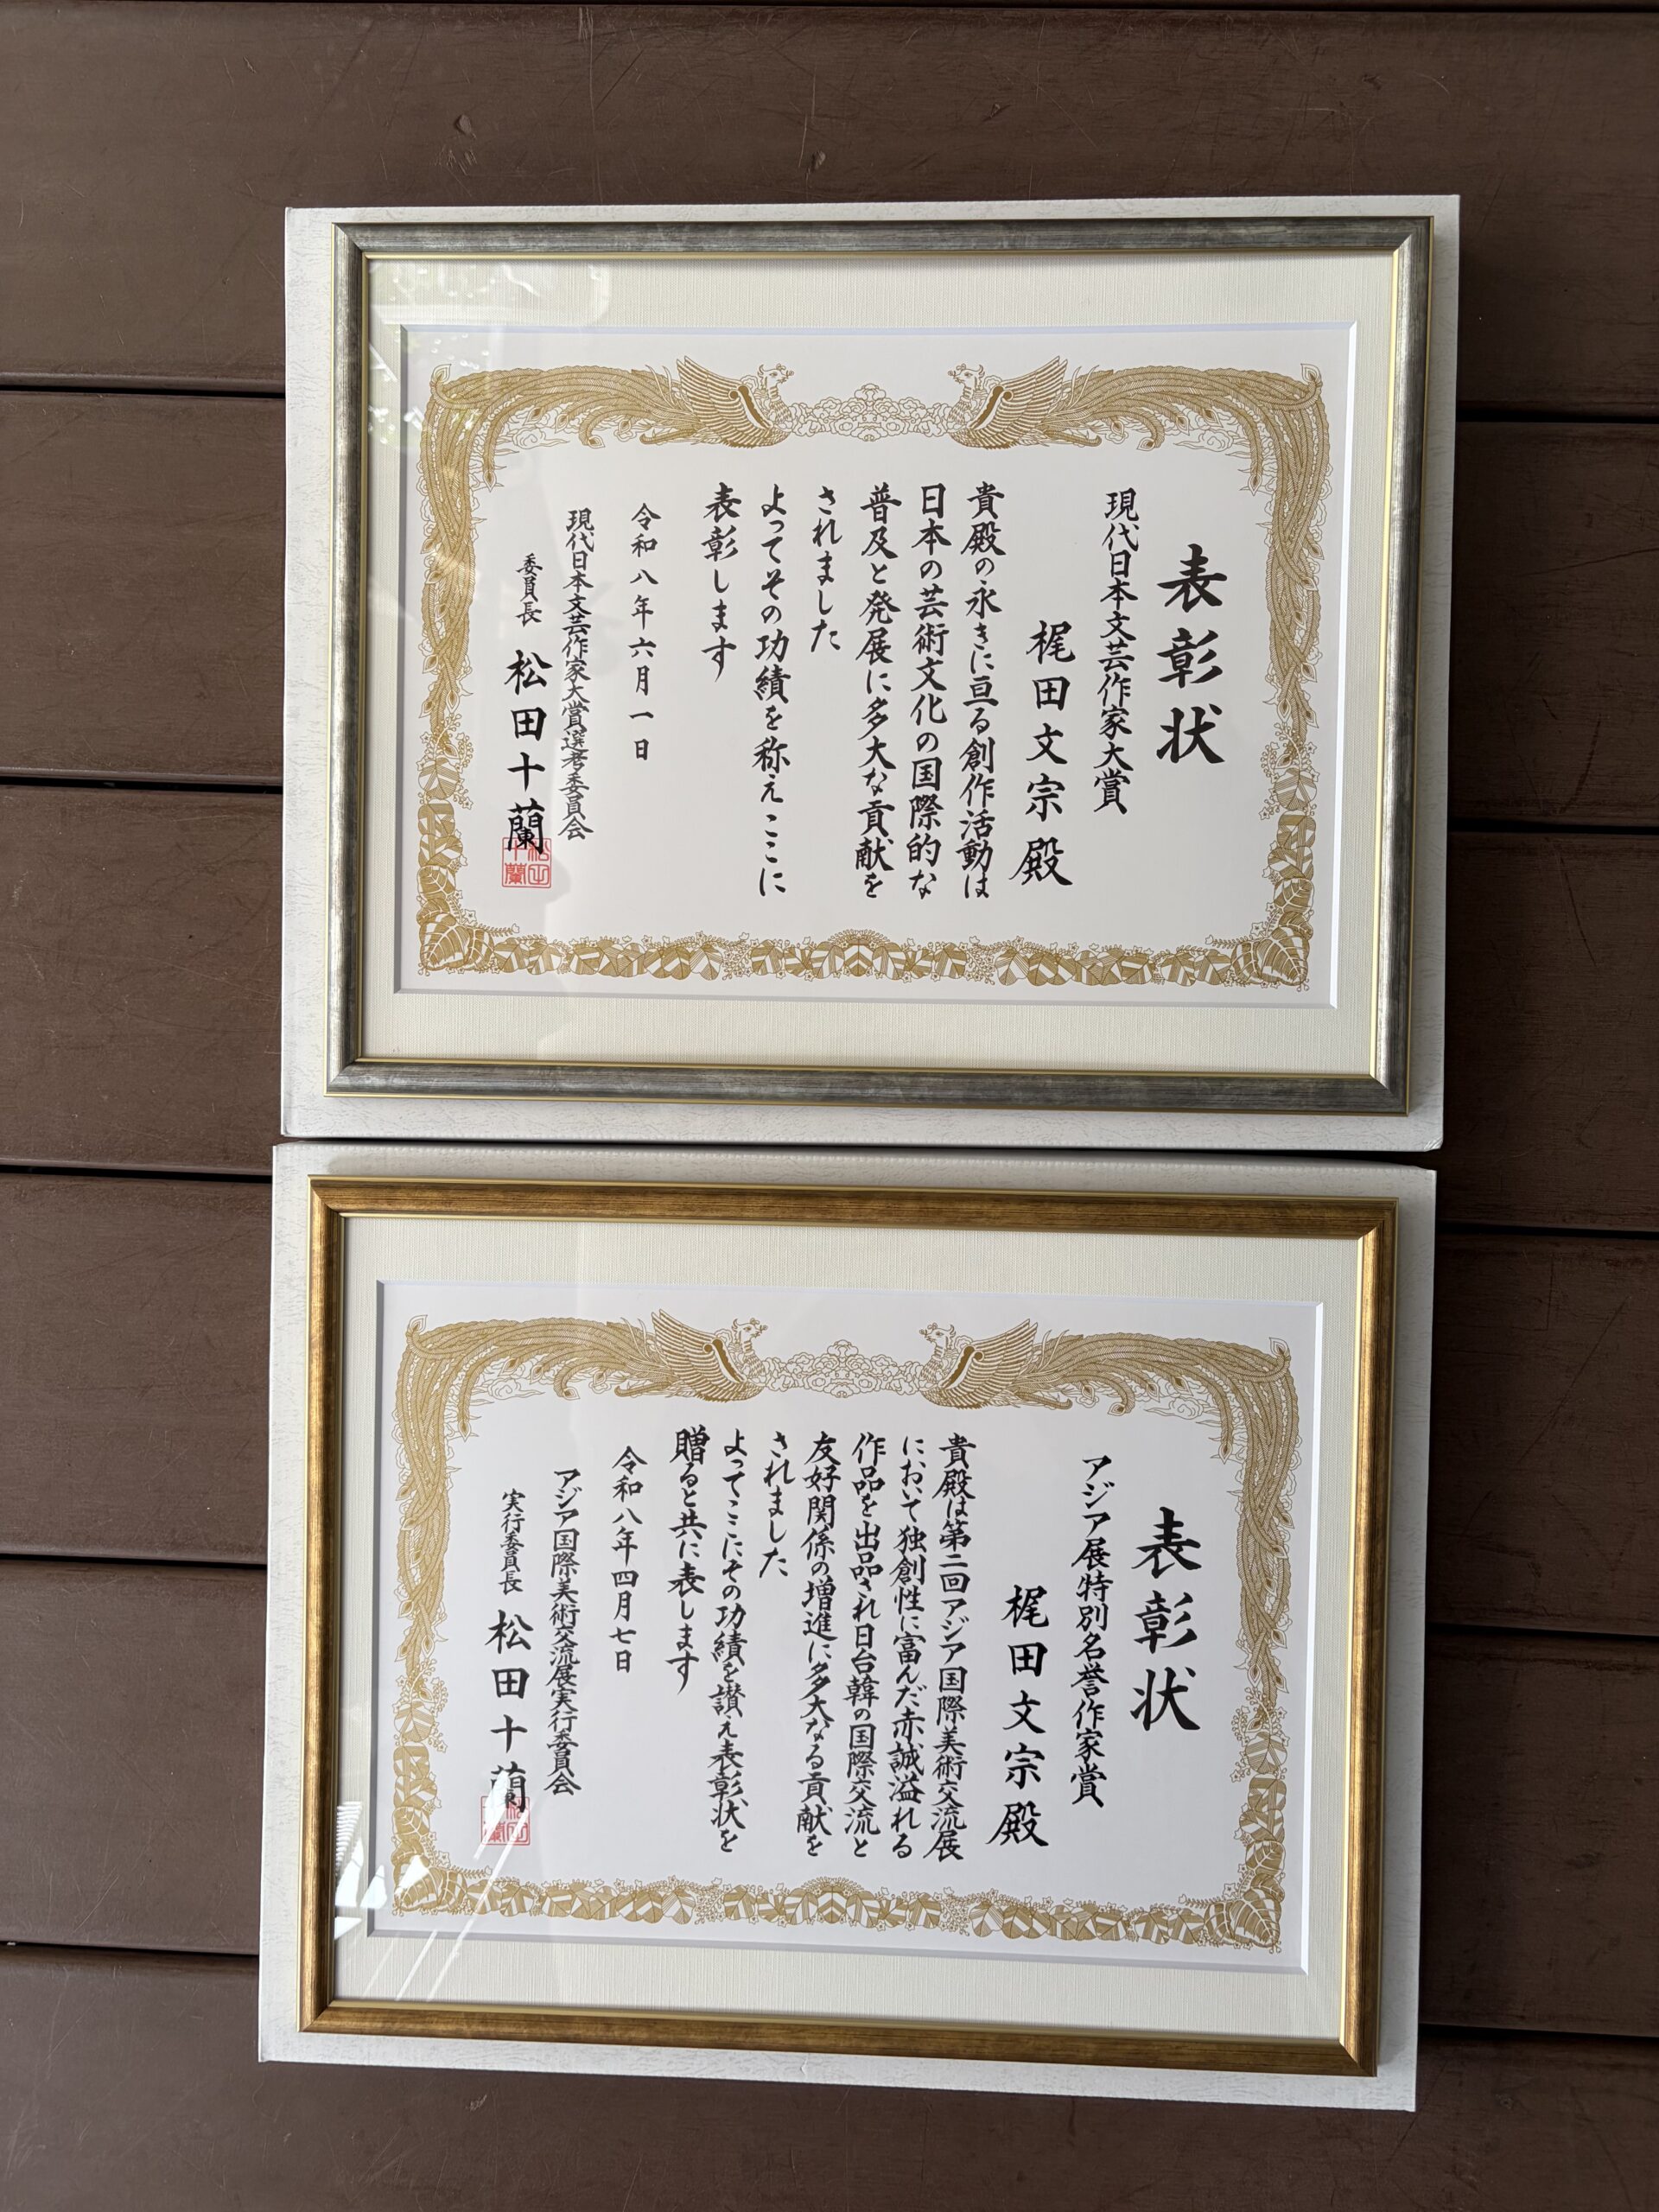 表彰状
現代日本文芸作家大賞
梶田文宗殿
貴殿の永きに亘る創作活動は
日本の芸術文化の国際的な
普及と発展に多大な貢献を
されました
よってその功績を称えここに
表彰します
令和八年六月一日
現代日本文芸作家大賞選考委員会
委員長 松田十蘭
松田
十蘭
表彰状
アジア展特別名誉作家賞
梶田文宗殿
貴殿は第二回アジア国際美術交流展
において独創性に富んだ赤誠溢れる
作品を出品され日台韓の国際交流と
友好関係の増進に多大なる貢献を
されました
よってここにその功績を讃え表彰状を
贈ると共に表します
令和八年四月七日
アジア国際美術交流展実行委員会
実行委員長 松田十蘭
松田
十蘭